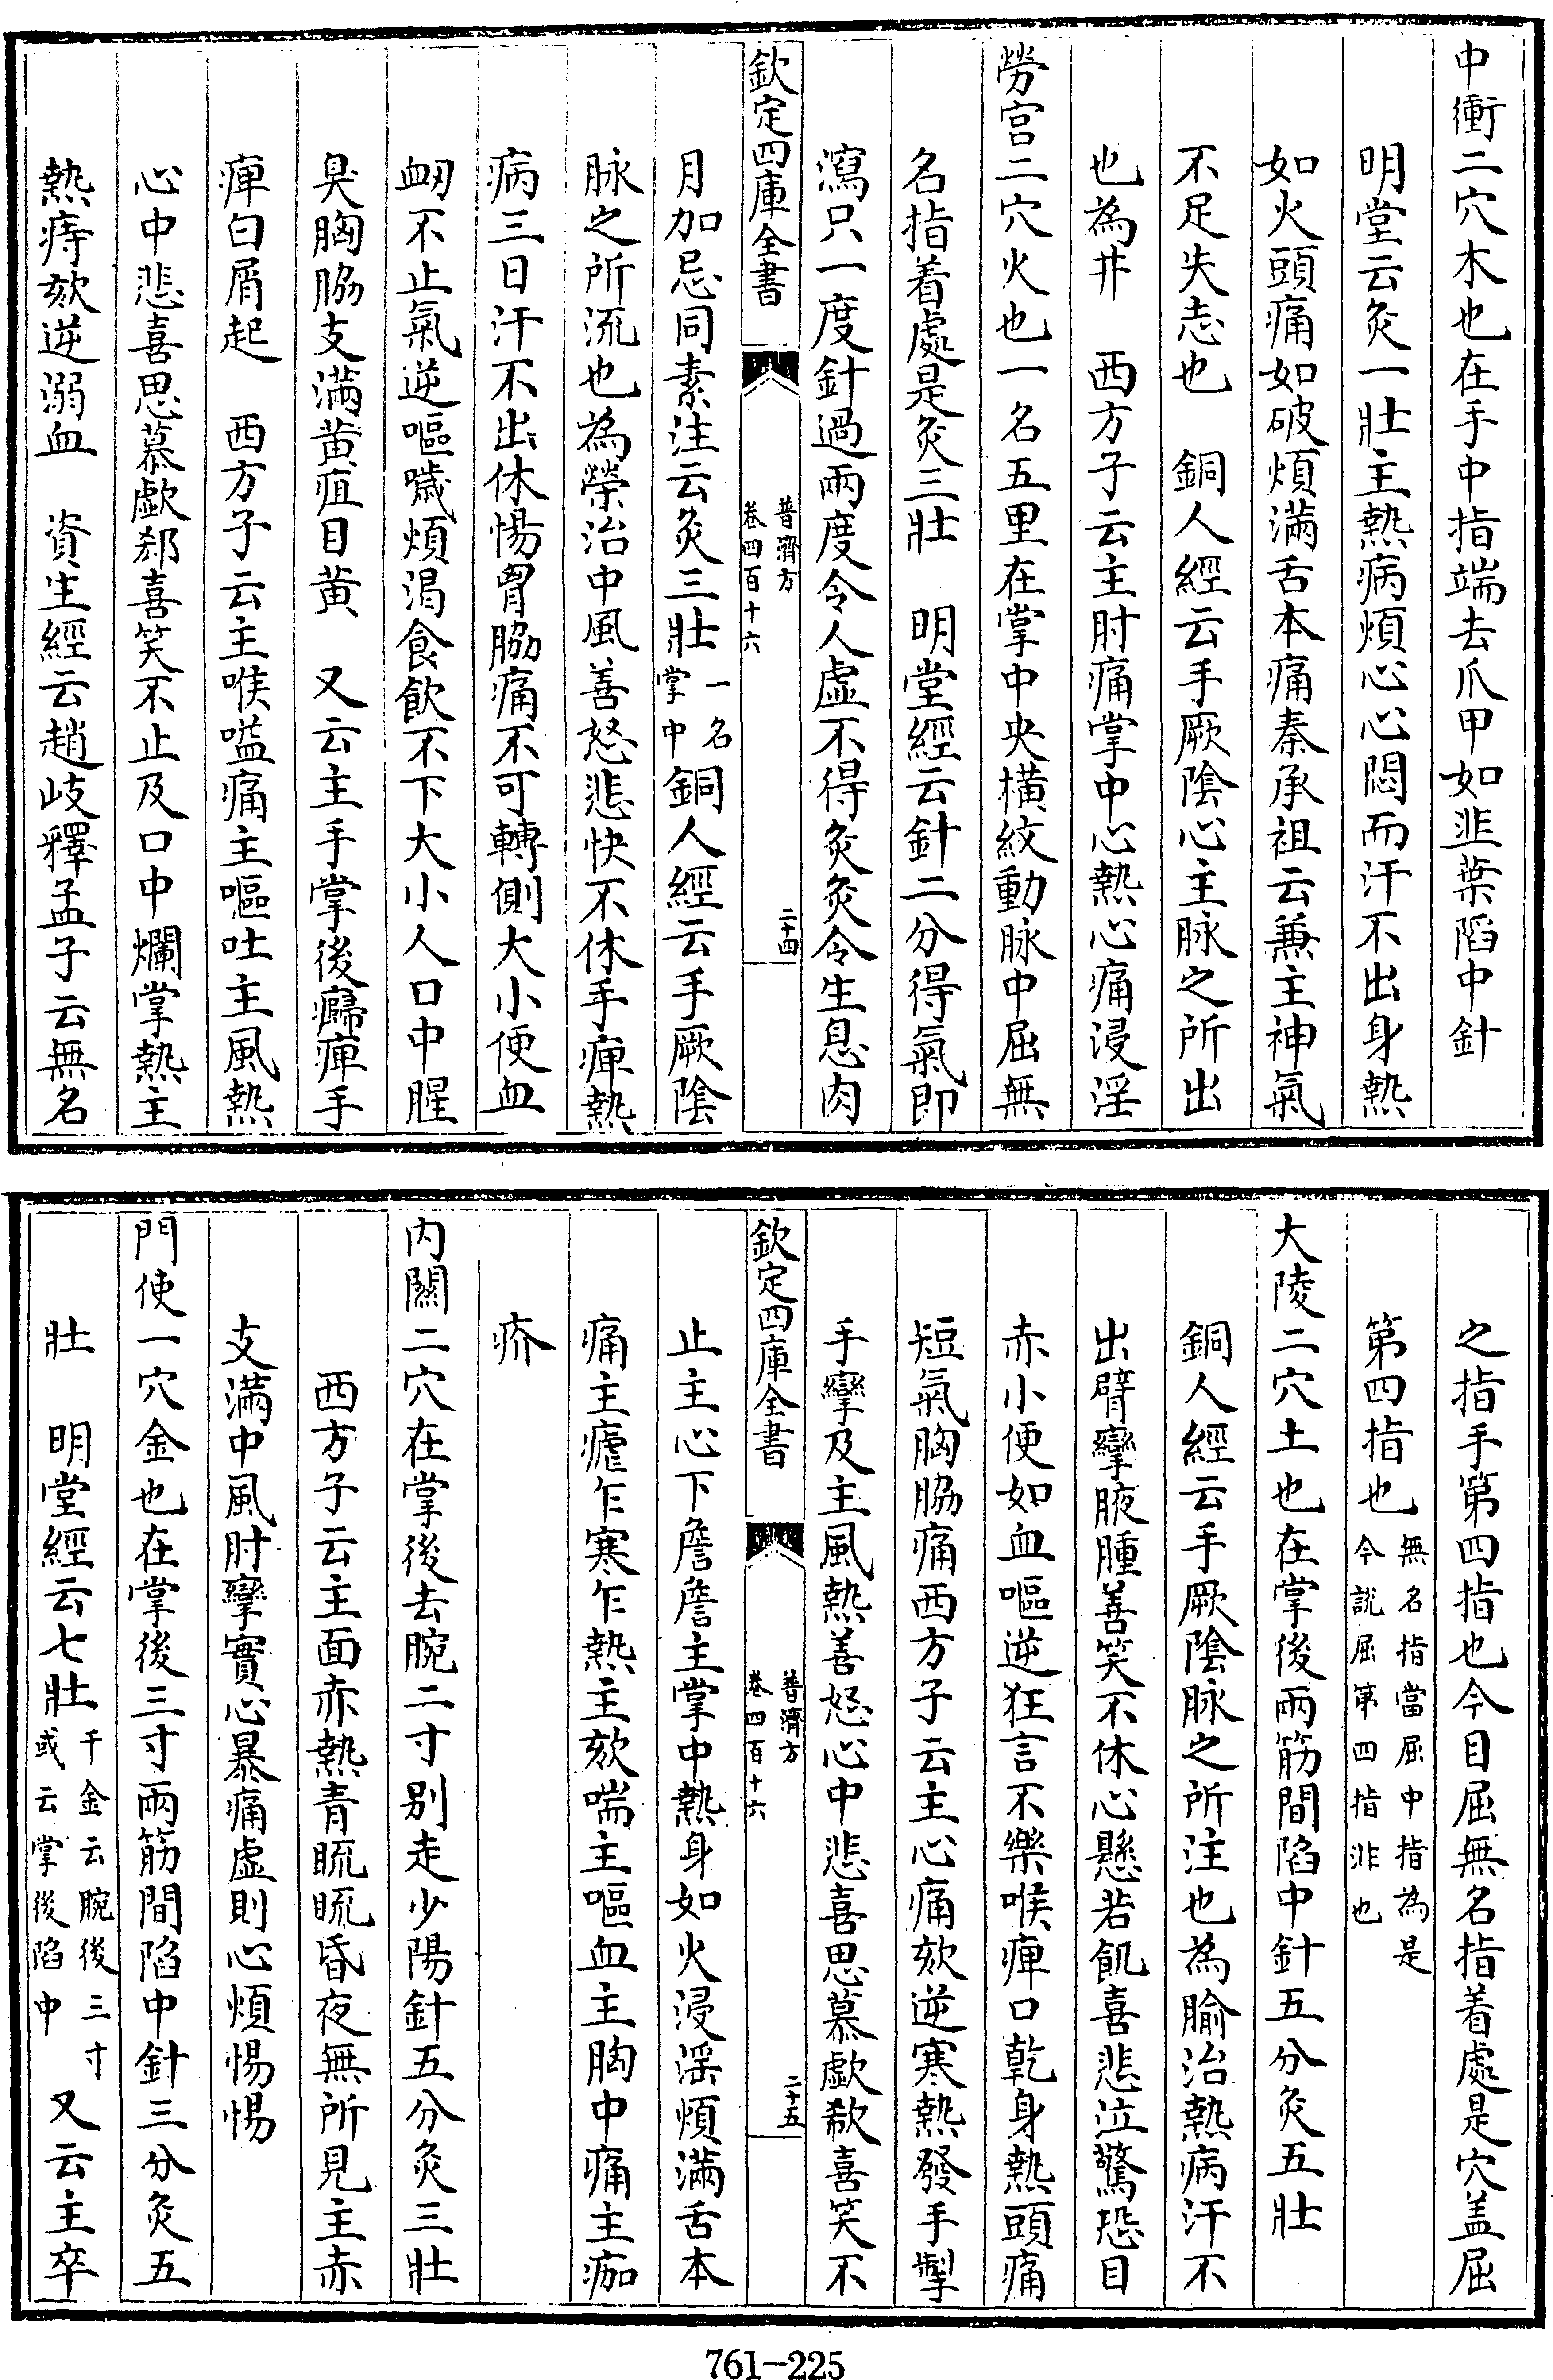 中衝二穴木也在手中指端去爪甲如韭葉陷中針
明堂云灸一壯主熱病煩心心悶而汗不出身熱
如火頭痛如破煩滿舌本痛秦承祖云兼主神氣
不足失志也　銅人經云手厥陰心主脉之所出
也為井　西方子云主肘痛掌中心熱心痛浸淫
勞宮二穴火也一名五里在掌中央橫紋動脉中屈無
名指着處是灸三壯　明堂經云針二分得氣即
瀉只一度針過兩度令人虛不得灸灸令生息肉
欽定四庫全書
普濟方
卷四百十六
二十四
月加忌同素注云灸三壯一名掌中銅人經云手厥陰
脉之所流也為滎治中風善怒悲快不休手痺熱
病三日汗不出休惕胃脇痛不可轉側大小便血
衄不止氣逆嘔噦煩渴食飲不下大小人口中腥
臭胸脇支滿黃疸目黃　又云主手掌後癬痺手
痺白屑起　西方子云主喉嗌痛主嘔吐主風熱
心中悲喜思慕歔郄喜笑不止及口中爛掌熱主
熱痔欬逆溺血　資生經云趙歧釋孟子云無名
之指手第四指也今目屈無名指着處是穴盖屈
第四指也無名指當屈中指為是今説屈第四指非也
大陵二穴土也在掌後兩筋間陷中針五分灸五壯
銅人經云手厥陰脉之所注也為腧治熱病汗不
出臂攣腋腫善笑不休心懸若飢喜悲泣驚恐目
赤小便如血嘔逆狂言不樂喉痺口乾身熱頭痛
短氣胸脇痛西方子云主心痛欬逆寒熱發手掣
手攣及主風熱善怒心中悲喜思慕歔欷喜笑不
欽定四庫全書
普濟方
卷四百十六
二十五
止主心下詹詹主掌中熱身如火浸淫煩滿舌本
痛主瘧乍寒乍熱主欬喘主嘔血主胸中痛主痂
疥
內關二穴在掌後去腕二寸別走少陽針五分灸三壯
西方子云主面赤熱青䀮䀮昏夜無所見主赤
支滿中風肘攣實心暴痛虛則心煩惕惕
門使一穴金也在掌後三寸兩筋間陷中針三分灸五
壯　明堂經云七壯千金云腕後三寸或云掌後陷中　又云主卒
761-225